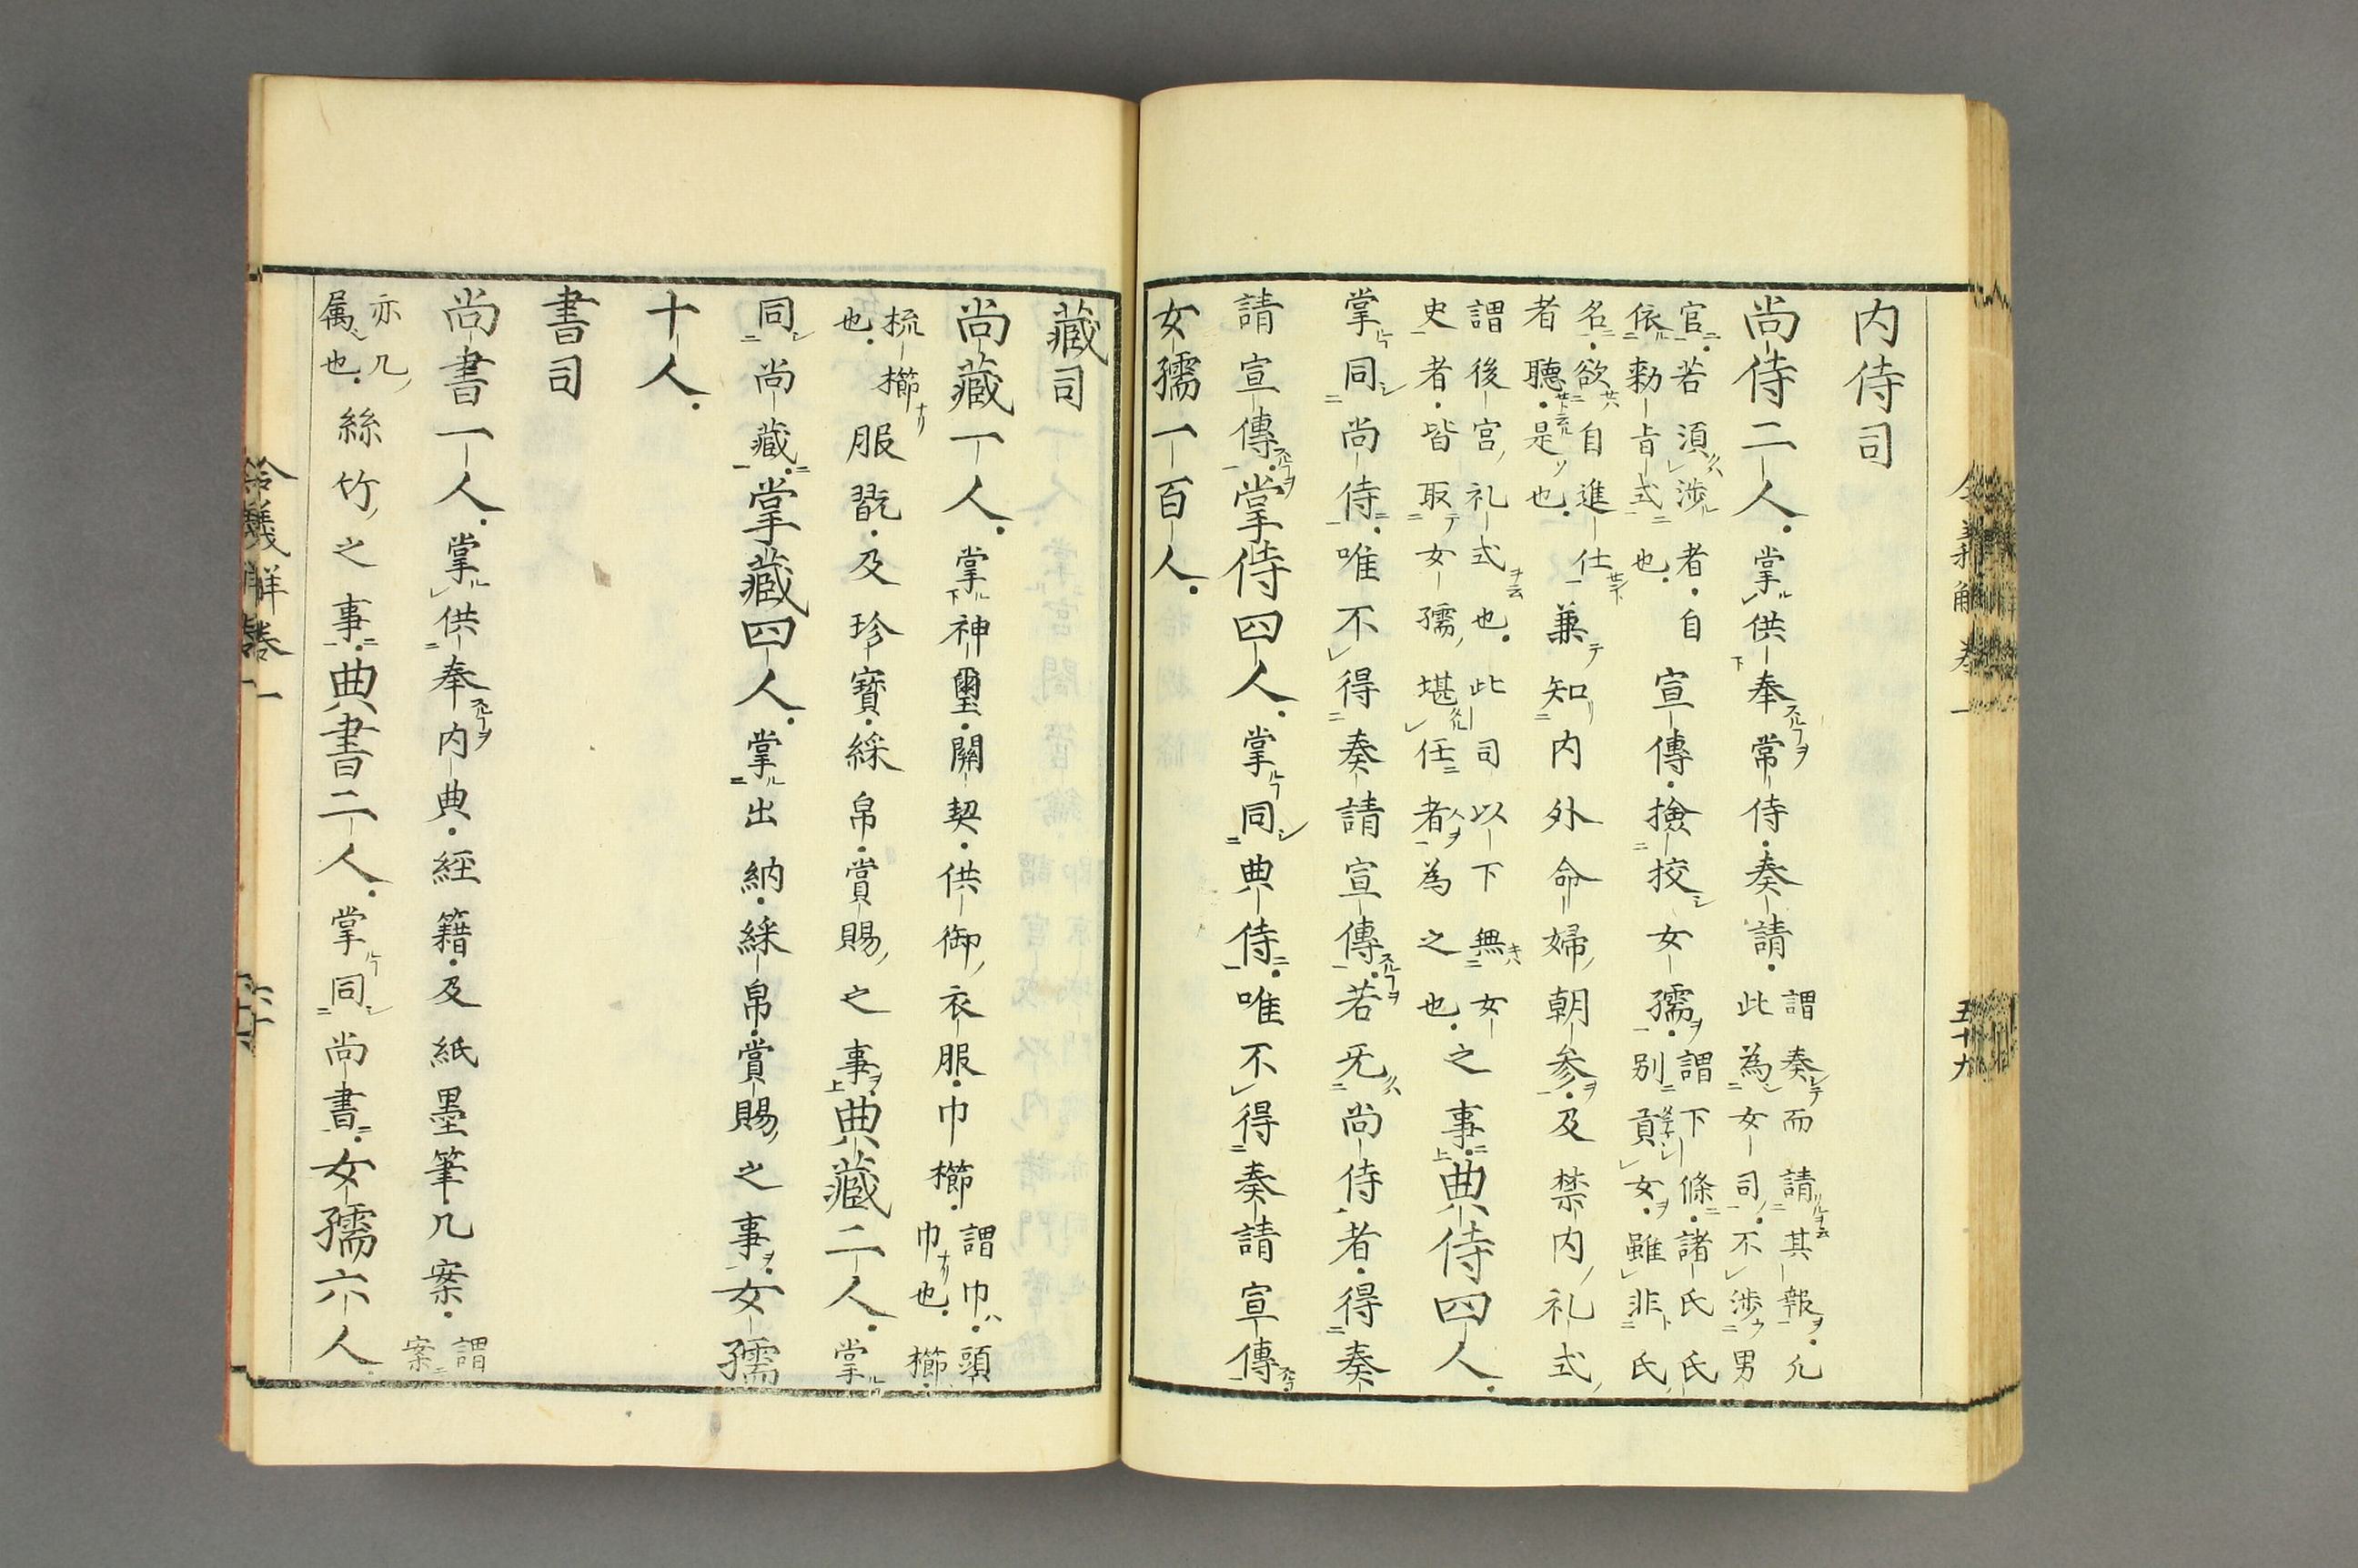 内侍司
尚侍二人。掌供奉常侍。奏請。謂奏而請其報。允
此為女司。不渉男
官。若須渉者。自
依勅旨式也。宣傳。撿挍女孺。謂下條。諸氏氏
別貢女。雖非氏
名。欲自進仕
者聽。是也。兼知内外命婦朝参。及禁内礼式
謂後宮礼式也。此司以下無女
史者。皆取女孺堪任者為之也。之事。典侍四人。
掌同尚侍。唯不得奏請宣傳。若无尚侍者。得奏
請宣傳。掌侍四人。掌同典侍。唯不得奏請宣傳。
女孺一百人。
藏司
尚藏一人。掌神璽。關契。供御衣服。巾櫛。謂巾。頭
巾也。櫛。
梳櫛
也。服翫。及珍寶。綵帛。賞賜之事。典藏二人。掌
同尚藏。掌藏四人。掌出納。綵帛。賞賜之事。女孺
十人。
書司
尚書一人。掌供奉内典。經籍。及紙墨筆几案。謂
案
亦几
属也。絲竹之事。典書二人。掌同尚書。女孺六人。
令義解卷一
五十九